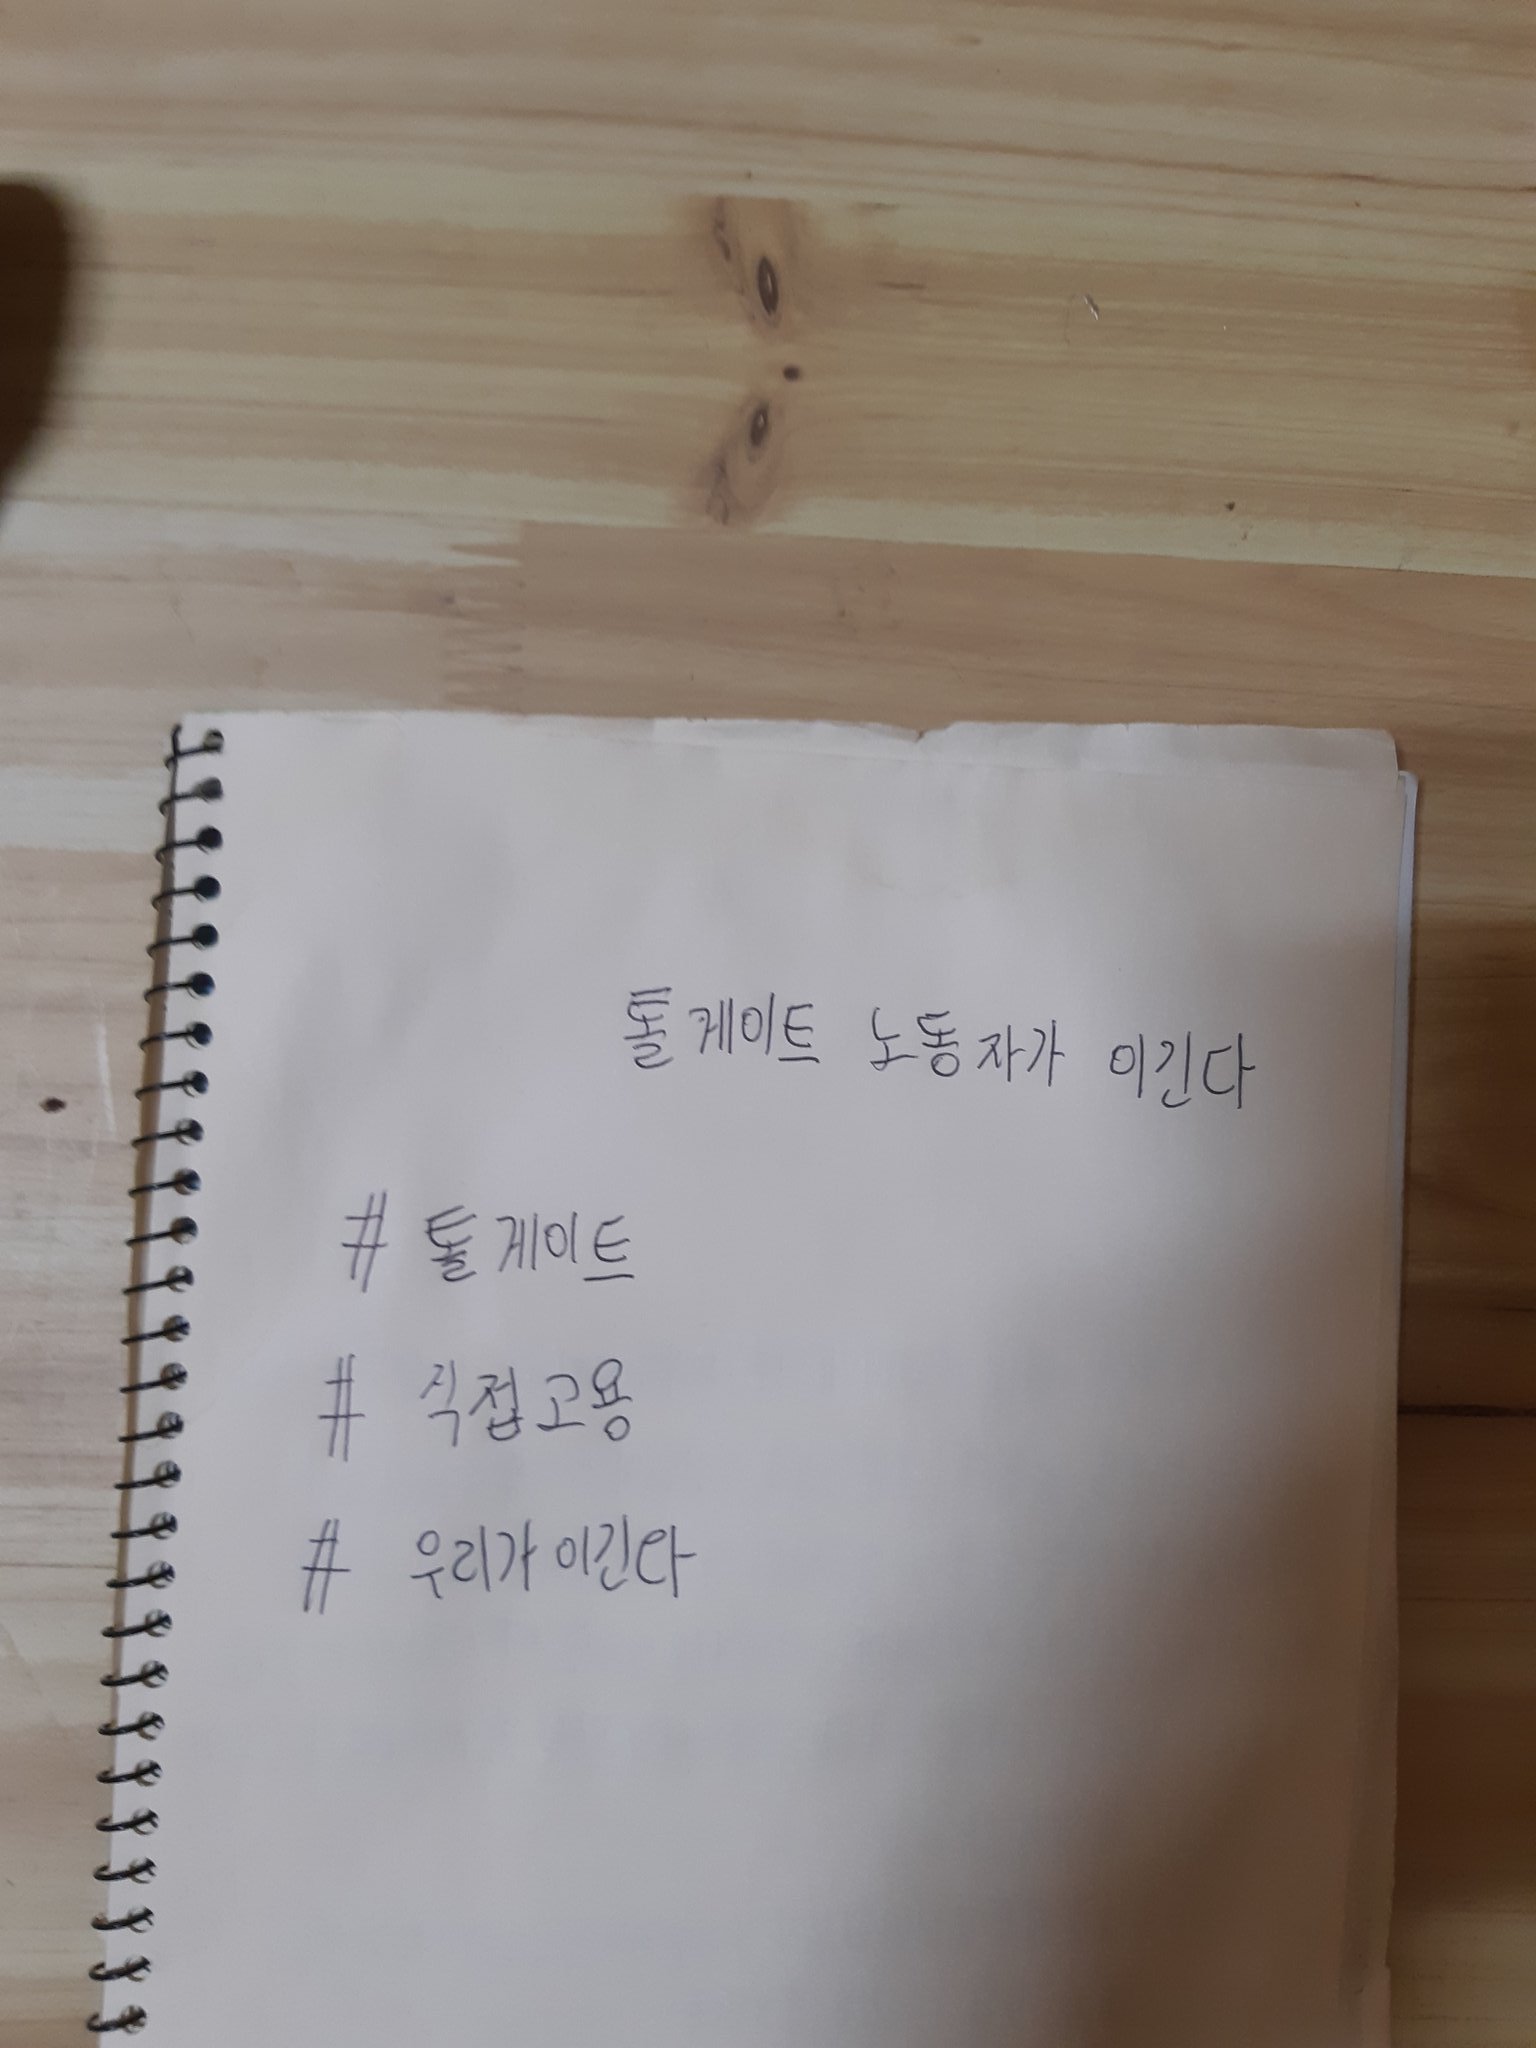 톨게이트 노동자가 이긴다
# 톨게이트
# 직접고용
# 우리가이긴다